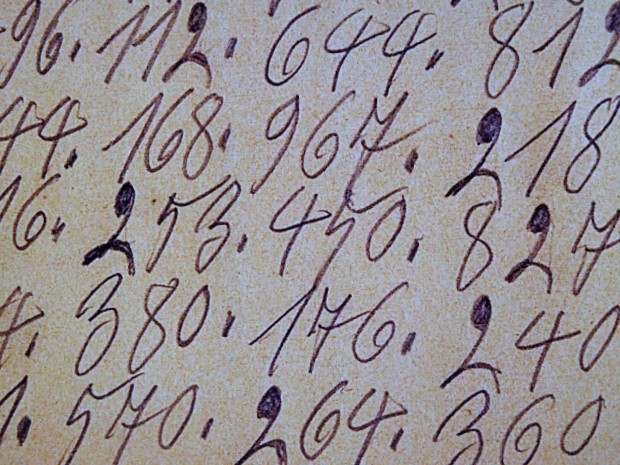 96. 112. 644. 812
44. 168. 967. 218
16. 253. 450. 827
4. 380. 176. 240
1. 570. 264. 360